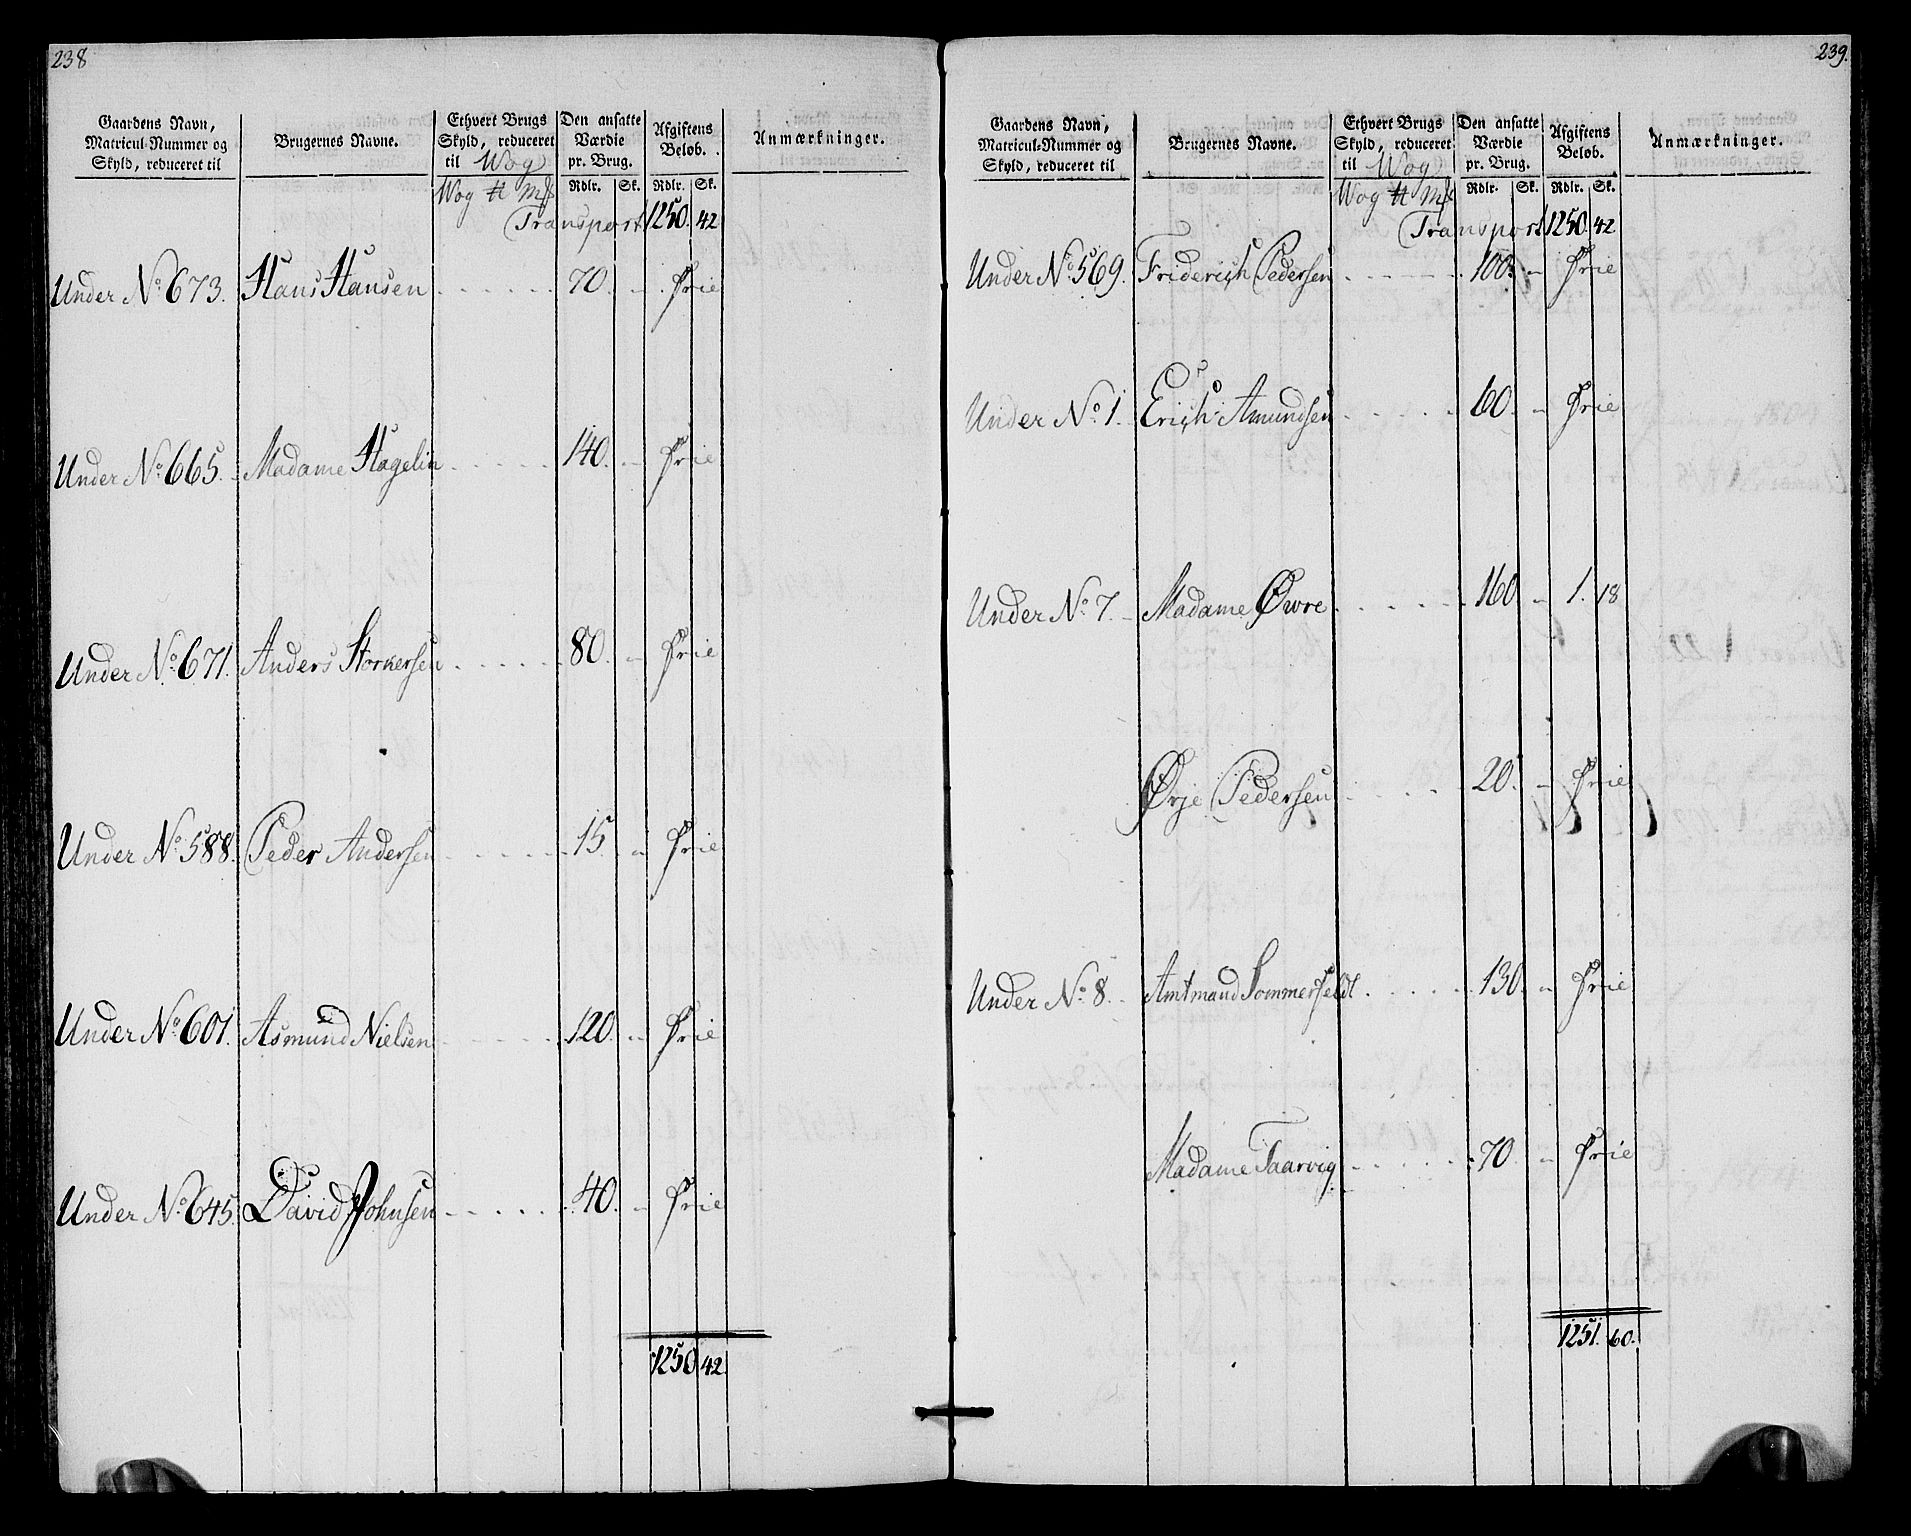 238
Gaardens Navn, Matricul-Nummer og Skyld, reduceret til | Brugernes Navne. | Ethvert Brugs Skyld, reduceret til Wog | Den ansatte Værdie pr. Brug. | Afgiftens Beløb. | Anmærkninger.
Wog ℔ Mk | Rdlr. | Sk. | Rdlr. | Sk.
Transport 1250. 42
Under No. 673. Hans Hansen 70. " Frie
Under No. 665. Madame Hagelin 140. " Frie
Under No. 671. Anders Storkersen 80. " Frie
Under No. 588. Peder Andersen 15. " Frie
Under No. 601. Asmund Nielsen 120. " Frie
Under No. 645. David Johnsen 40. " Frie
1250 42
239.
Gaardens Navn, Matricul-Nummer og Skyld, reduceret til | Brugernes Navne. | Ethvert Brugs Skyld, reduceret til Wog | Den ansatte Værdie pr. Brug. | Afgiftens Beløb. | Anmærkninger.
Wog ℔ Mk | Rdlr. | Sk. | Rdlr. | Sk.
Transport 1250. 42
Under No. 569. Friderich Pedersen 100. " Frie
Under No. 1. Erich Amundsen 60. " Frie
Under No. 7. Madame Øwre 160 " 1. 18
Ørje Pedersen 20. " Frie
Under No. 8. Amtmand Sommerfeldt 130. " Frie
Madame Taarvig 70. " Frie
1251. 60.